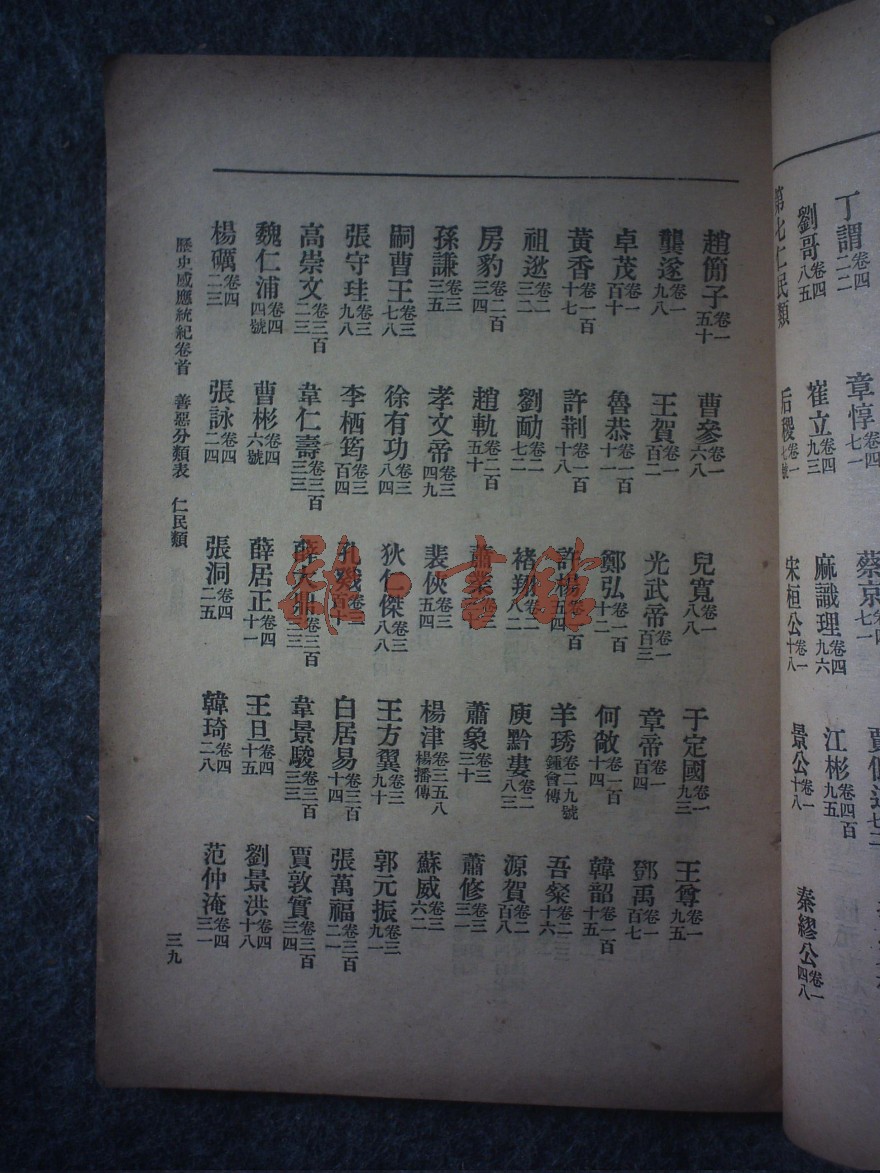 丁謂卷四二二 章惇卷四七一 蔡京
劉哥卷四八五 崔立卷四九三 麻識理卷四九六 江彬卷四百九五
第七仁民類 后稷卷一七號 宋桓公卷一十八 景公卷一十八 秦繆公卷一四八
趙簡子卷一五十 曹參卷一六八 兒寬卷一八八 于定國卷一九三 王尊卷一九五
龔遂卷一九八 王賀卷一百二 光武帝卷一百三 章帝卷一百四 鄧禹卷一百七
卓茂卷一百十 魯恭卷一百十一 鄭弘卷一百十二 何敞卷一百十四 韓韶卷一百十五
黃香卷一百十七 許荆卷一百十八 許楊 羊琇卷二九號鍾會傳 吾粲卷二十六
祖逖卷二三二 劉勔卷二七二 褚翔卷二八二 庾黔婁卷二八三 源賀卷二百八
房豹卷二百三四 趙軌卷二百五十 蕭業 蕭象卷三三十 蕭修卷三三一
孫謙卷三三五 孝文帝卷三四九 裴俠卷三五四 楊津卷三五八楊播傳 蘇威卷三六二
嗣曹王卷三七八 徐有功卷三八四 狄仁傑卷三八八 王方翼卷三九十 郭元振卷三九一
張守珪卷三九八 李栖筠卷三百四 孔戣 白居易卷三百十四 張萬福卷三百二一
高崇文卷三百二三 韋仁壽卷三百三三 薛大鼎卷三百三三 韋景駿卷三百三三 賈敦實卷三百三四
魏仁浦卷四四號 曹彬卷四六號 薛居正卷四十一 王旦卷四十五 劉景洪卷四十八
楊礪卷四二三 張詠卷四二四 張洞卷四二五 韓琦卷四二八 范仲淹卷四三一
歷史感應統紀卷首 善惡分類表 仁民類 三九